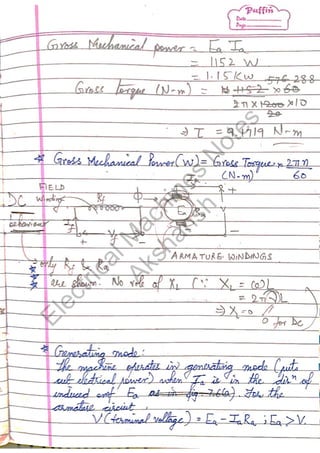 Puffin
Date
Page
Gross Mechanical power = Ea Ia
= 1152 W
= 1.15 KW
576.288
Gross torque (N-m) = 1152 × 60
2π × 1200 × 10
20
⇒ τ = 9.1719 N-m
* Gross Mechanical Power (W) = Gross Torque × 2πn
(N-m) 60
FIELD
Winding Rf ϕ
R +
DC
Ea
Ra
V
behaviour
If
+ V -
ARMATURE WINDINGS
* only Rf & Ra
* are shown. No role of XL (∵ XL = (ω)L
= 2πfL
⇒ XL = 0
0 for DC)
* Generating mode:
The machine operates in generating mode (puts
out electrical power) when Ia is in the dirn of
induced emf Ea as in fig 7.6(a). For the
armature circuit,
V (terminal voltage) = Ea - IaRa ; Ea > V.
Electrical Machines Notes
Akshansh